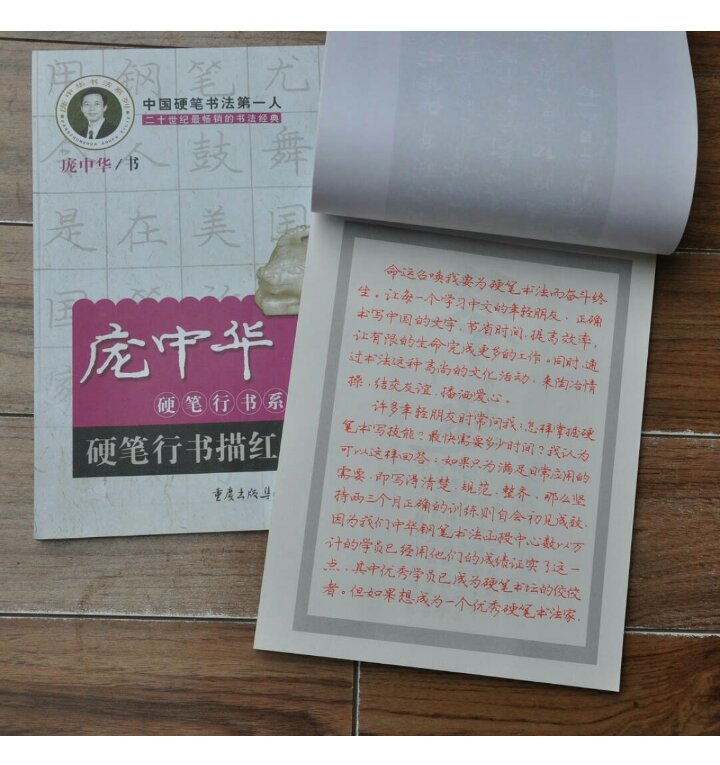 用钢笔尤
人鼓舞
是在美国
国
家
庞中华书法系列
中国硬笔书法第一人
二十世纪最畅销的书法经典
庞中华/书
庞中华
硬笔行书系
硬笔行书描红
重庆出版集
命运召唤我要为硬笔书法而奋斗终
生。让每一个学习中文的年轻朋友，正确
书写中国的文字，节省时间，提高效率，
让有限的生命完成更多的工作。同时，通
过书法这种高尚的文化活动，来陶冶情
操，结交友谊，播洒爱心。
许多年轻朋友时常问我：怎样掌握硬
笔书写技能？最快需要多少时间？我认为
可以这样回答：如果只为满足日常应用的
需要，即写得清楚、规范、整齐，那么坚
持两三个月正确的训练则自会初见成效，
因为我们中华钢笔书法函授中心数以万
计的学员已经用他们的成绩证实了这一
点，其中优秀学员已成为硬笔书坛的佼佼
者。但如果想成为一个优秀硬笔书法家，